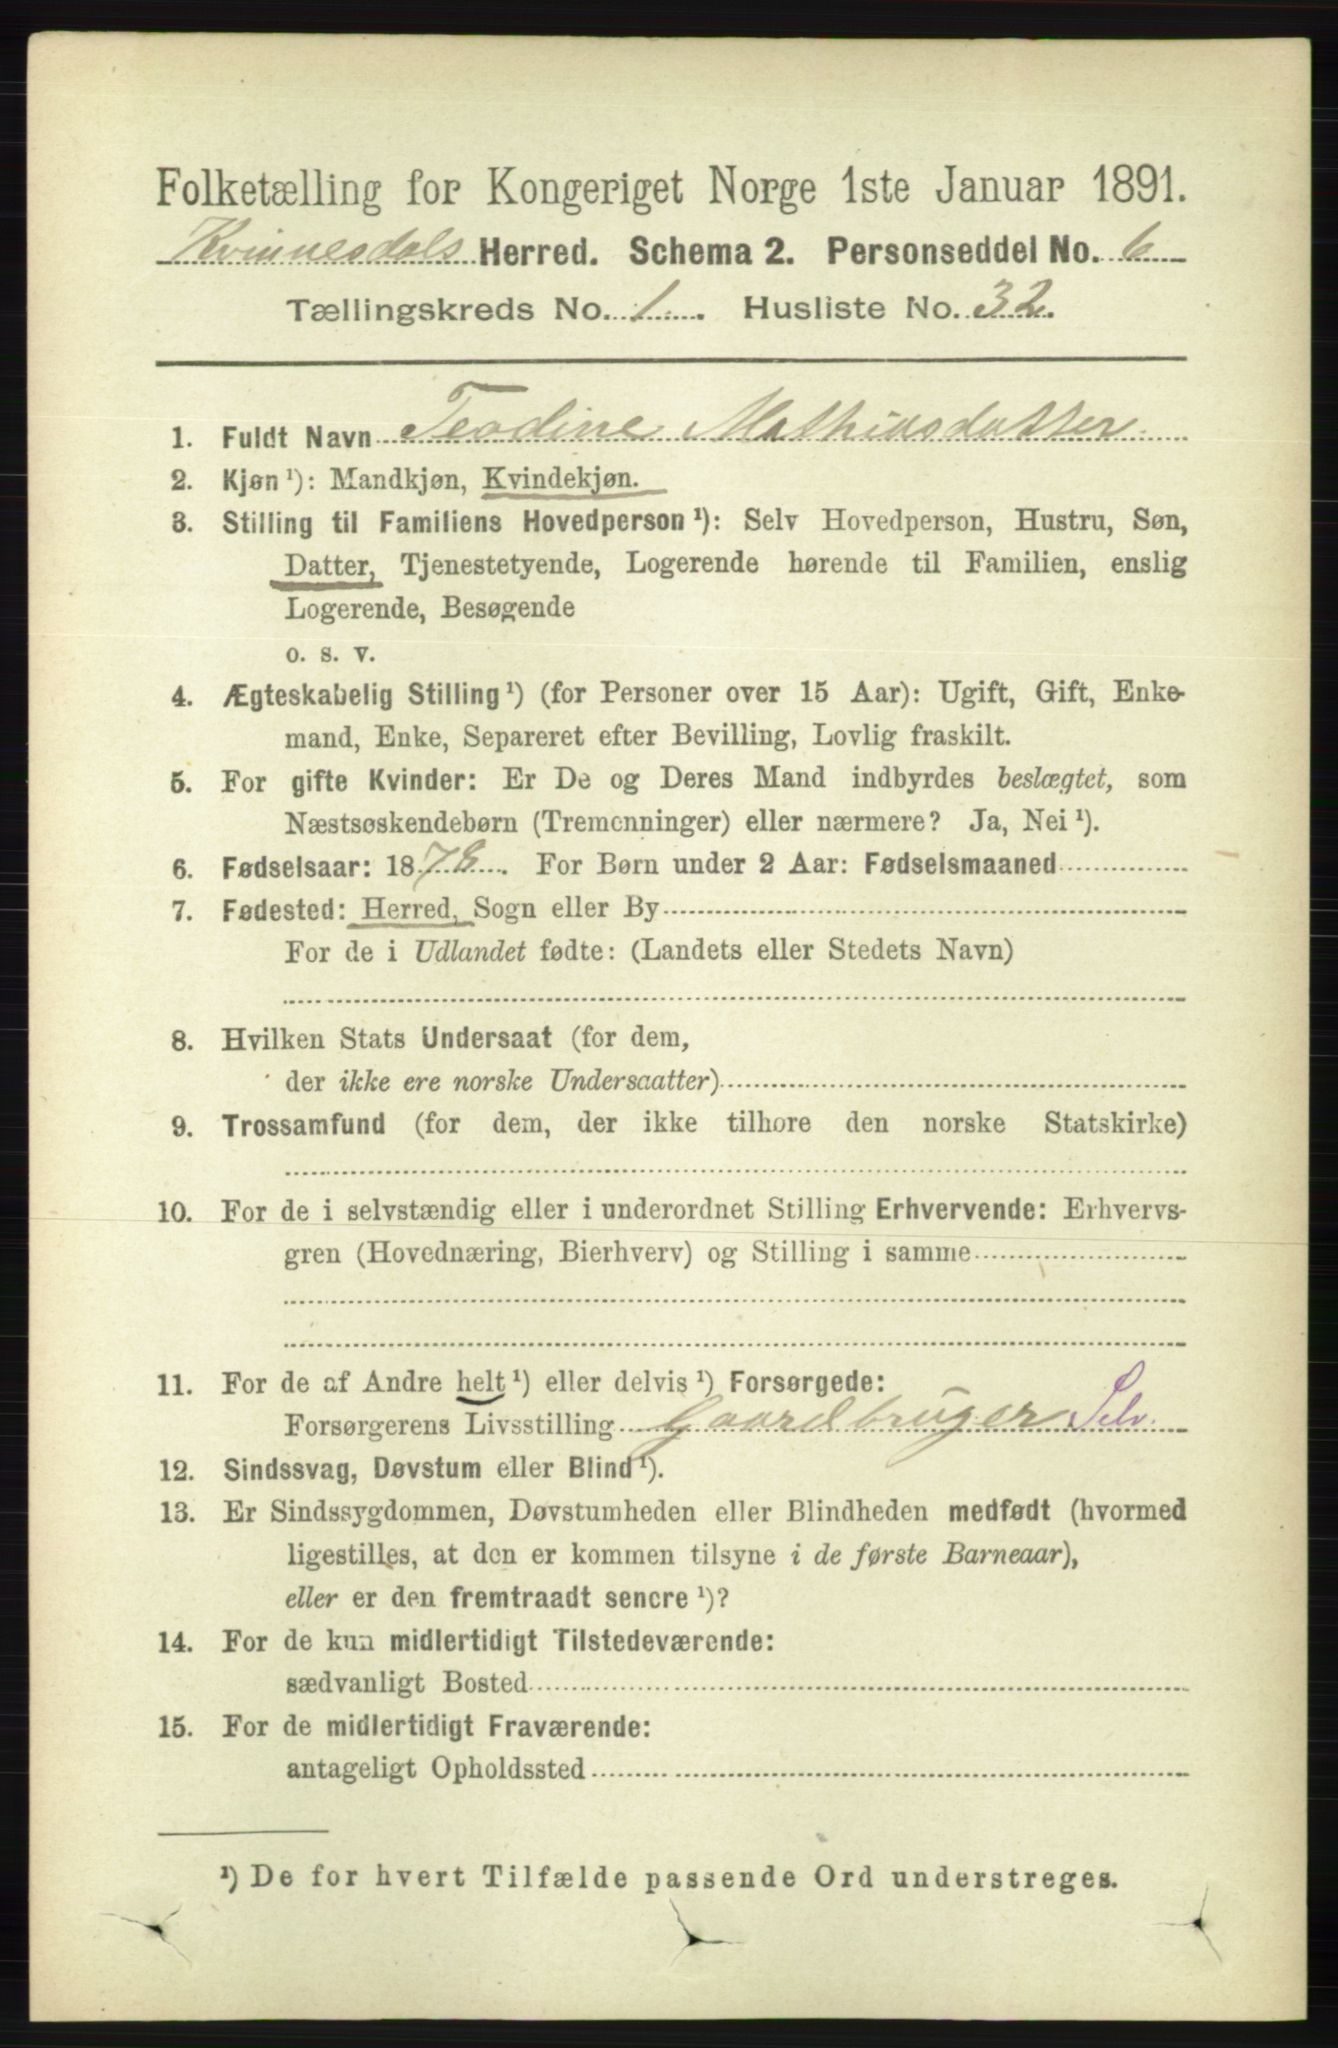 Folketælling for Kongeriget Norge 1ste Januar 1891.
Kvinnesdals Herred. Schema 2. Personseddel No. 6
Tællingskreds No. 1 . Husliste No. 32.
1. Fuldt Navn Teodine Mathiasdatter
2. Kjøn ¹): Mandkjøn, Kvindekjøn.
3. Stilling til Familiens Hovedperson ¹): Selv Hovedperson, Hustru, Søn,
Datter, Tjenestetyende, Logerende hørende til Familien, enslig
Logerende, Besøgende
o. s. v.
4. Ægteskabelig Stilling ¹) (for Personer over 15 Aar): Ugift, Gift, Enke-
mand, Enke, Separeret efter Bevilling, Lovlig fraskilt.
5. For gifte Kvinder: Er De og Deres Mand indbyrdes beslægtet, som
Næstsøskendebørn (Tremenninger) eller nærmere? Ja, Nei ¹).
6. Fødselsaar: 1878. For Børn under 2 Aar: Fødselsmaaned
7. Fødested: Herred, Sogn eller By
For de i Udlandet fødte: (Landets eller Stedets Navn)
8. Hvilken Stats Undersaat (for dem,
der ikke ere norske Undersaatter)
9. Trossamfund (for dem, der ikke tilhøre den norske Statskirke)
10. For de i selvstændig eller i underordnet Stilling Erhvervende: Erhvervs-
gren (Hovednæring, Bierhverv) og Stilling i samme
11. For de af Andre helt ¹) eller delvis ¹) Forsørgede:
Forsørgerens Livsstilling Gaardbruger Selv.
12. Sindssvag, Døvstum eller Blind ¹).
13. Er Sindssygdommen, Døvstumheden eller Blindheden medfødt (hvormed
ligestilles, at den er kommen tilsyne i de første Barneaar),
eller er den fremtraadt senere ¹)?
14. For de kun midlertidigt Tilstedeværende:
sædvanligt Bosted
15. For de midlertidigt Fraværende:
antageligt Opholdssted
¹) De for hvert Tilfælde passende Ord understreges.